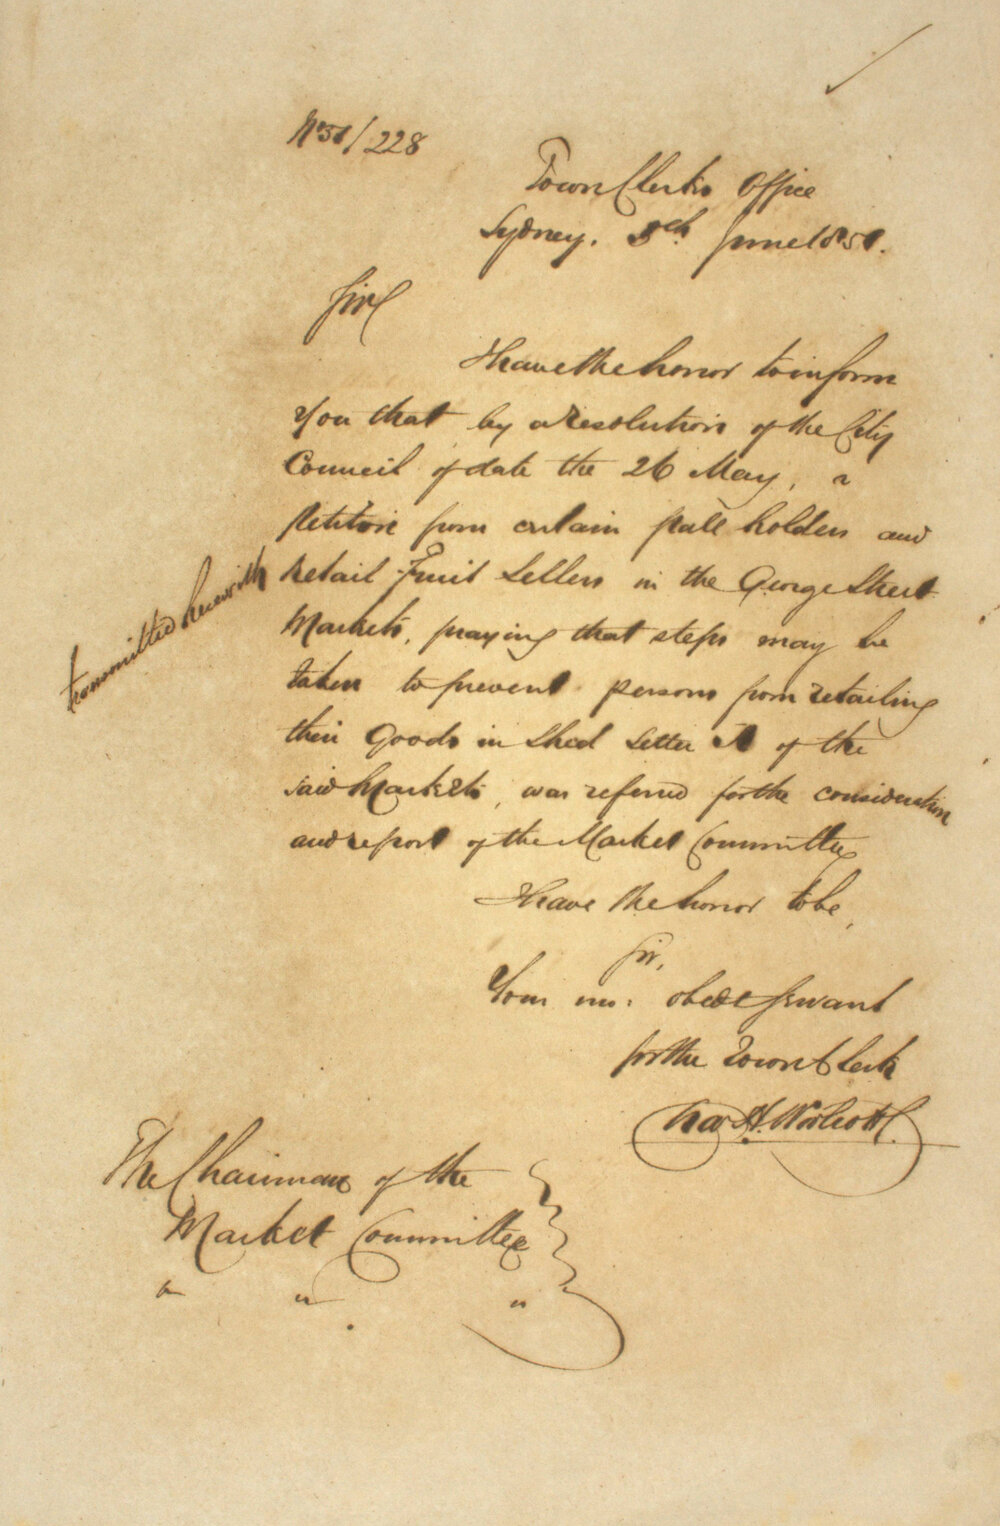 No 51/228
Town Clerks Office
Sydney. 5th June 1851.
Sir
I have the honor to inform
you that by a Resolution of the City
Council of date the 26 May, a
Petition from certain stall holders and
Retail Fruit Sellers in the George Street
transmitted herewith
Markets, praying that steps may be
taken to prevent persons from retailing
their Goods in Shed Letter A of the
said Markets, was referred for the consideration
and report of the Market Committee
I have the honor to be,
Sir,
Your mo: obedt servant
for the Town Clerk
Chas H. Woolcott
The Chairman of the
Market Committee
" " "